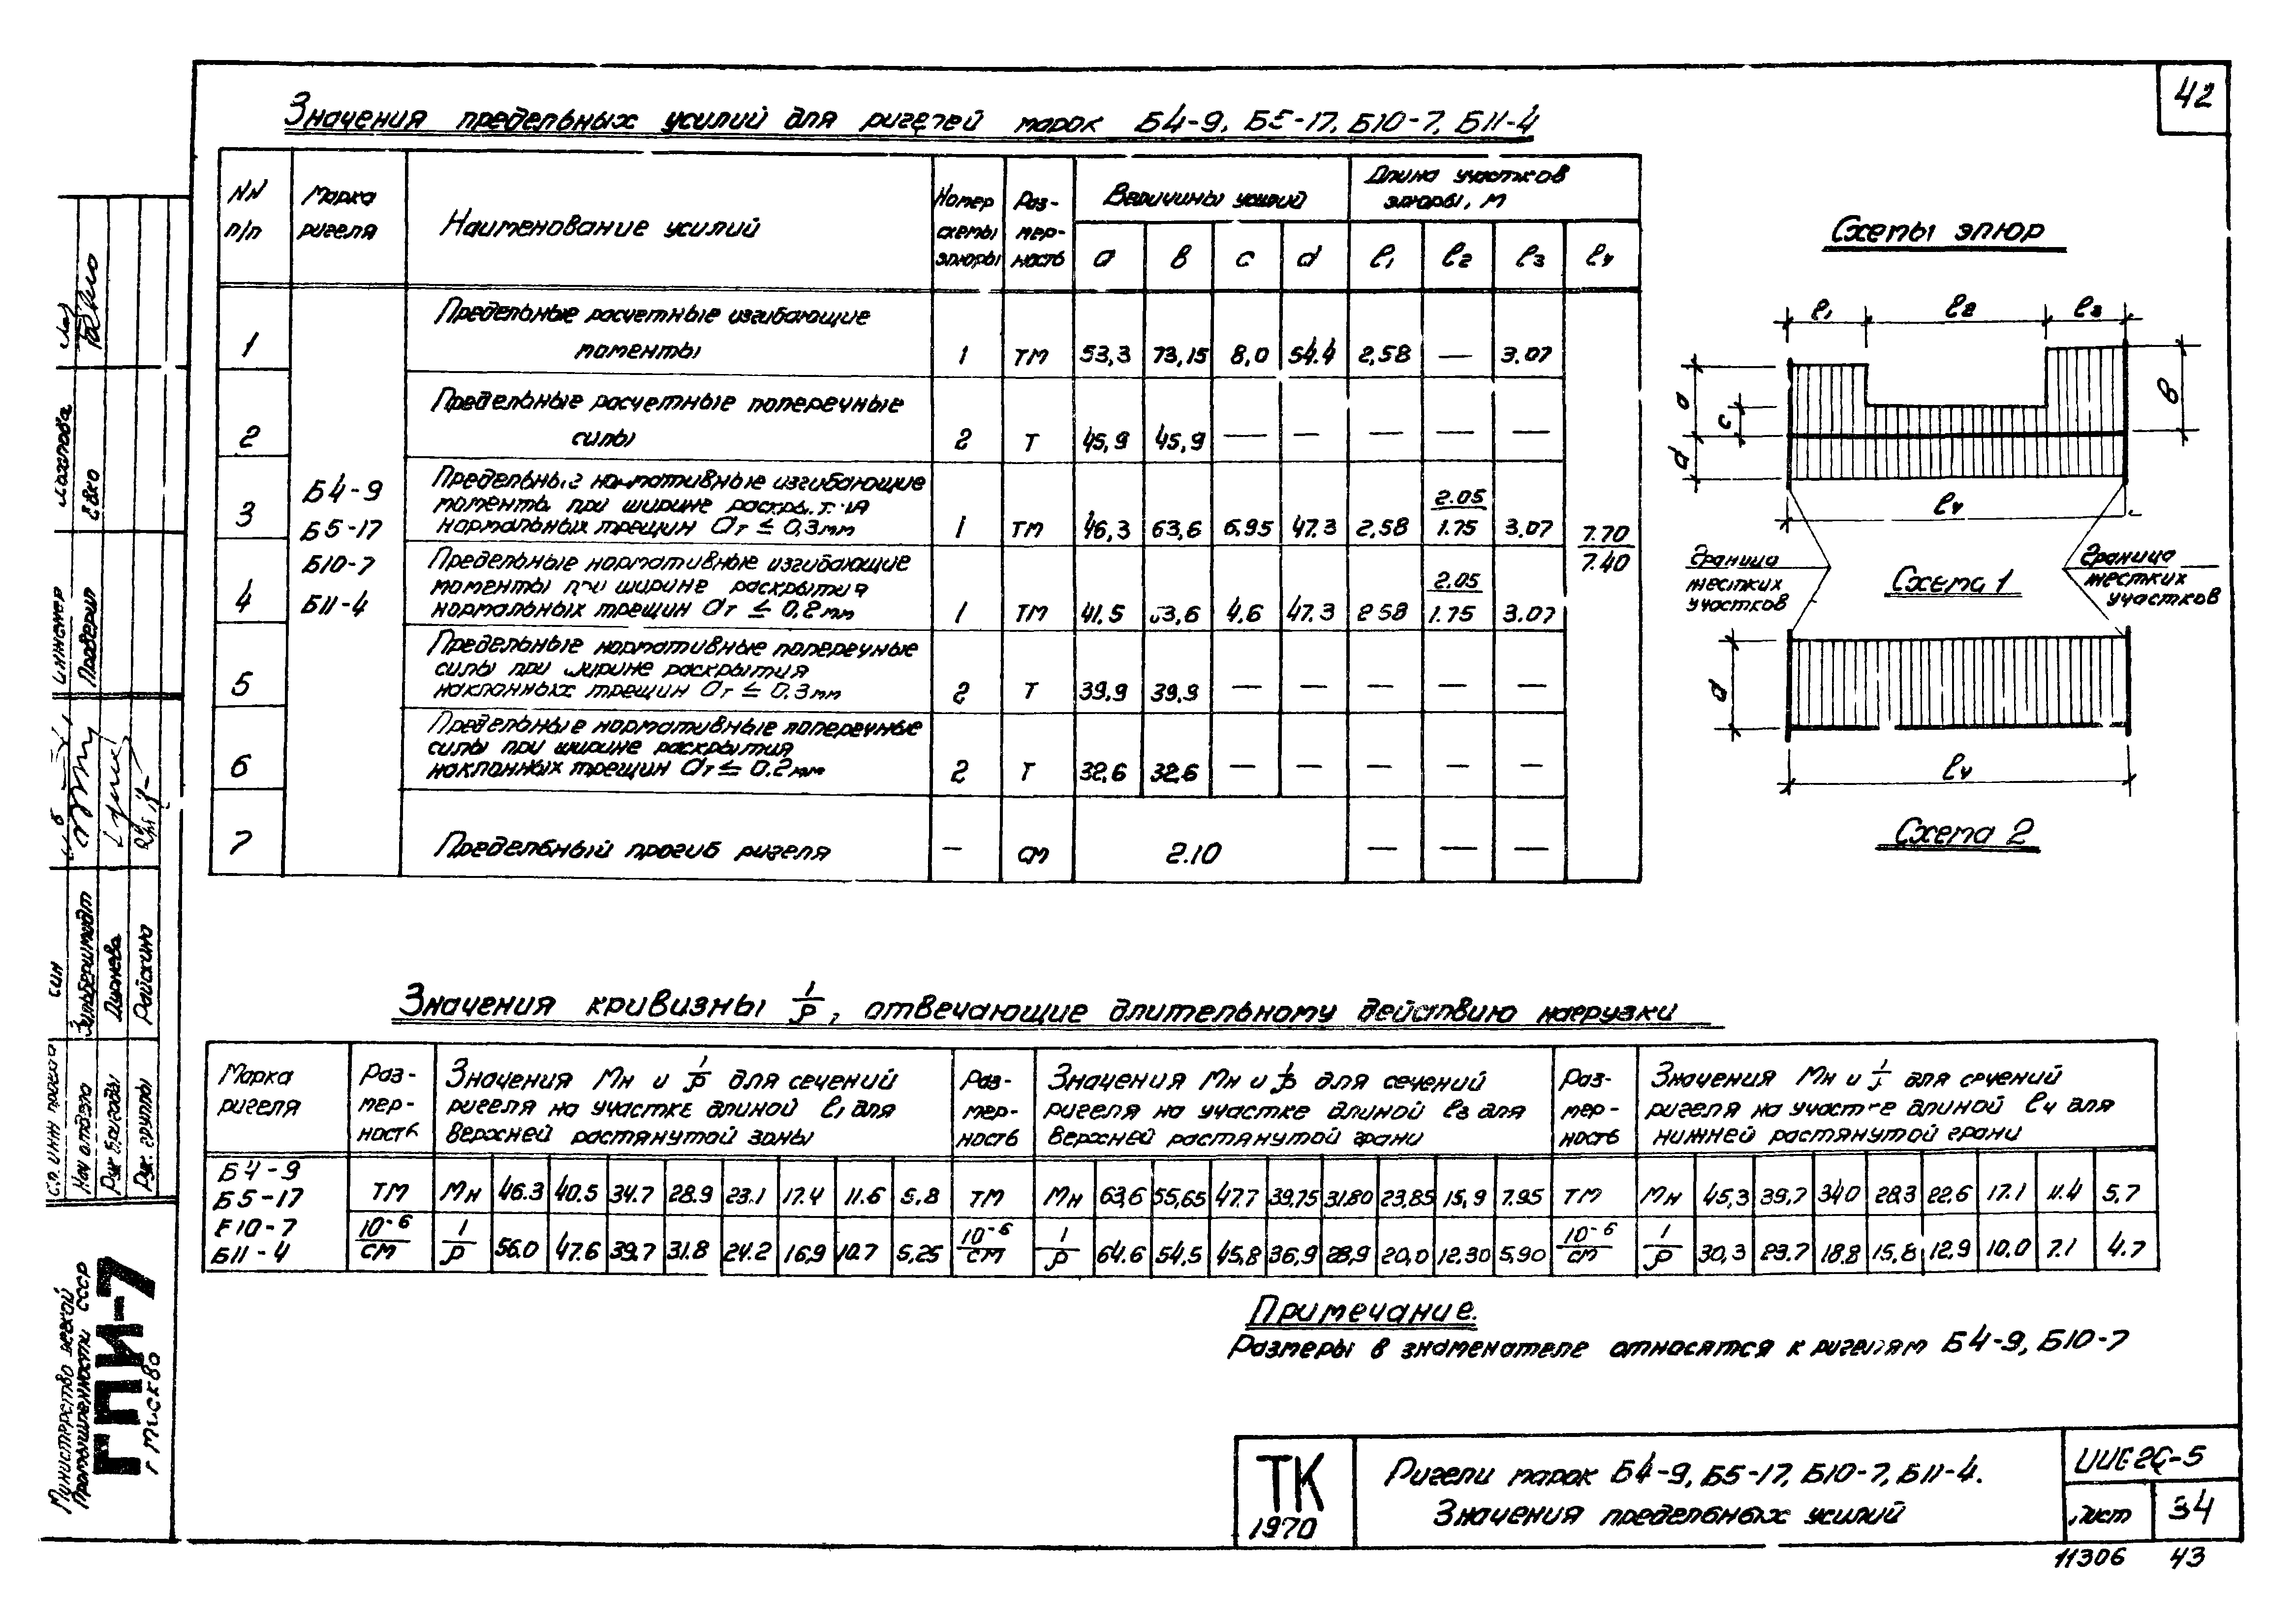 42
Значения предельных усилий для ригелей марок Б4-9, Б5-17, Б10-7, Б11-4
NN п/п
Марка ригеля
Наименование усилий
Номер схемы эпюры
Раз-мер-ность
Величины усилий
Длина участков эпюры, м
a в c d ℓ1 ℓ2 ℓ3 ℓ4
Б4-9
Б5-17
Б10-7
Б11-4
1 Предельные расчетные изгибающие
моменты 1 тм 53,3 73,15 8,0 54.4 2,58 — 3.07
2 Предельные расчетные поперечные
силы 2 т 45,9 45,9 — — — — —
3 Предельные нормативные изгибающие
моменты при ширине раскрытия
нормальных трещин aт ≤ 0,3мм 1 тм 46,3 63,6 6.95 47.3 2.58 2.05/1.75 3.07
7.70/7.40
4 Предельные нормативные изгибающие
моменты при ширине раскрытия
нормальных трещин aт ≤ 0,2мм 1 тм 41.5 4,6 47.3 2 58 2.05/1.75 3.07
5 Предельные нормативные поперечные
силы при ширине раскрытия
наклонных трещин aт ≤ 0.3мм 2 т 39,9 39.9 — — — — —
6 Предельные нормативные поперечные
силы при ширине раскрытия
наклонных трещин aт ≤ 0.2мм 2 т 32,6 32,6 — — — — —
7 Предельный прогиб ригеля — см 2.10 — — —
Схемы эпюр
ℓ1 ℓ2 ℓ3
a c d в
ℓ4
Граница жестких участков
Схема 1
Граница жестких участков
d
ℓ4
Схема 2
Значения кривизны 1/ρ, отвечающие длительному действию нагрузки
Марка ригеля
Раз-мер-ность
Значения Мн и 1/ρ для сечений
ригеля на участке длиной ℓ1 для
верхней растянутой зоны
Раз-мер-ность
Значения Мн и 1/ρ для сечений
ригеля на участке длиной ℓ3 для
верхней растянутой грани
Раз-мер-ность
Значения Мн и 1/ρ для сечений
ригеля на участке длиной ℓ4 для
нижней растянутой грани
Б4-9
Б5-17
Б10-7
Б11-4
тм Мн 46.3 40.5 34.7 28.9 23.1 17.4 11.6 5,8 тм Мн 63,6 55,65 47.7 39,75 31.80 23,85 15,9 7.95 тм Мн 45,3 39,7 340 28.3 22,6 17.1 11.4 5,7
10⁻⁶/см 1/ρ 56.0 47.6 39.7 31.8 24.2 16,9 10.7 5,25 10⁻⁶/см 1/ρ 64.6 54,5 45,8 36,9 28,9 20,0 12.30 5,90 10⁻⁶/см 1/ρ 30,3 23.7 18.8 15,8 12,9 10,0 7.1 4.7
Примечание.
Размеры в знаменателе относятся к ригелям Б4-9, Б10-7
ТК
1970
Ригели марок Б4-9, Б5-17, Б10-7, Б11-4.
Значения предельных усилий
лист 34
11306 43
Инженер
Проверил
Евко
Нач отдела Зильбершмидт
Рук бригады Дурнева
Рук. группы Райскина
Министерство легкой
промышленности СССР
ГПИ-7
г Москва